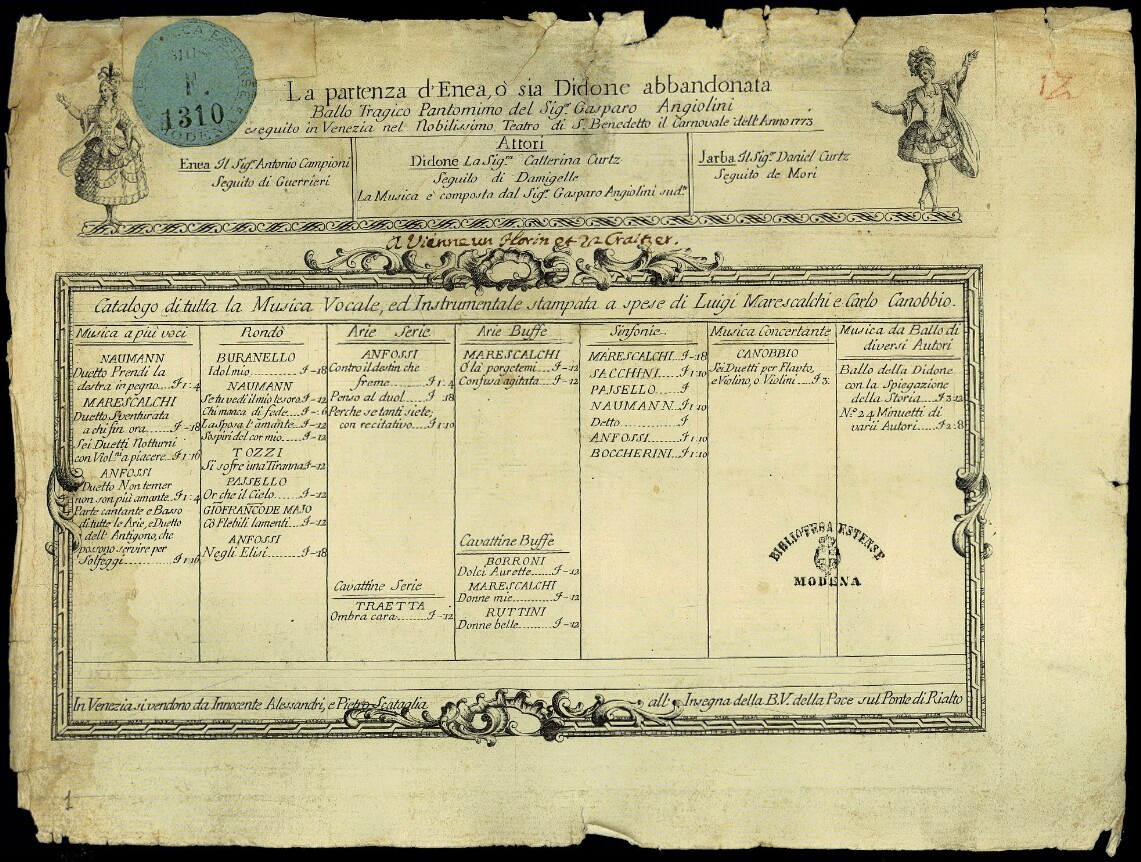 BIBLIOTECA ESTENSE
MUS.
F.
1310
MODENA
12
La partenza d'Enea, ò sia Didone abbandonata
Ballo Tragico Pantomimo del Sig.r Gasparo Angiolini
eseguito in Venezia nel Nobilissimo Teatro di S. Benedetto il Carnovale dell'Anno 1773
Attori
Enea Il Sig.r Antonio Campioni
Seguito di Guerrieri
Didone La Sig.ra Catterina Curtz
Seguito di Damigelle
La Musica è composta dal Sig.r Gasparo Angiolini sud.o
Jarba Il Sig.r Daniel Curtz
Seguito de Mori
a Vienne un florin et 22 Craitzer.
Catalogo di tutta la Musica Vocale, ed Instrumentale stampata a spese di Luigi Marescalchi e Carlo Canobbio.
Musica a più voci
NAUMANN
Duetto Prendi la
destra in pegno....£ 1:4
MARESCALCHI
Duetto Sventurata
a chi fin ora......£ -18
Sei Duetti Notturni
con Viol.ni a piacere..£ 1:16
ANFOSSI
Duetto Non temer
non son più amante..£ 1:4
Parte cantante e Basso
di tutte le Arie, e Duetto
dell' Antigono, che
possono servire per
Solfeggi........£ 1:16
Rondò
BURANELLO
Idol mio.......£ -18
NAUMANN
Se tu vedi il mio tesoro £ -12
Chi manca di fede..£ -:6
La Sposa l'amante..£ -12
Sospiri del cor mio...£ -12
TOZZI
Si sofre una Tiranna £ -12
PAISELLO
Or che il Cielo.....£ -12
GIO FRANCO DE MAJO
Cò Flebili lamenti....£ -12
ANFOSSI
Negli Elisi.......£ -18
Arie Serie
ANFOSSI
Contro il destin che
freme.........£ 1:4
Penso al duol....£ :18
Perche se tanti siete;
con recitativo.....£ 1:10
Cavattine Serie
TRAETTA
Ombra cara......£ -12
Arie Buffe
MARESCALCHI
O là porgetemi...£ -12
Confusa agitata...£ -12
Cavattine Buffe
BORRONI
Dolci Aurette.......£ -12
MARESCALCHI
Donne mie..........£ -12
RUTTINI
Donne belle.........£ -12
Sinfonie
MARESCALCHI...£ -18
SACCHINI.....£ 1:10
PAISELLO.....£
NAUMANN...£ 1:10
Detto.......£ 1:10
ANFOSSI.....£ 1:10
BOCCHERINI..£ 1:10
Musica Concertante
CANOBBIO
Sei Duetti per Flauto,
e Violino, o Violini...£ 3:
Musica da Ballo di
diversi Autori
Ballo della Didone
con la Spiegazione
della Storia....£ 3:12
N.o 24 Minuetti di
varii Autori.....£ 2:8
BIBLIOTECA ESTENSE
MODENA
In Venezia si vendono da Innocente Alessandri, e Pietro Scataglia
all' Insegna della B.V. della Pace sul Ponte di Rialto
1